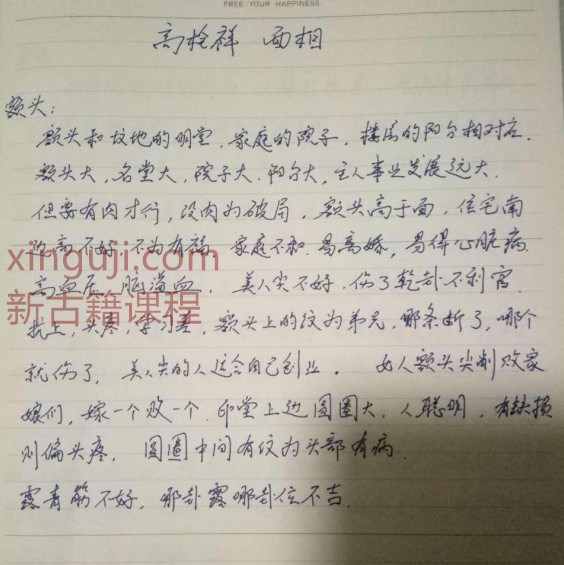 FREE YOUR HAPPINESS
高栓祥 面相
额头：
额头和坟地的明堂，家庭的院子，楼房的阳台相对应．
额头大，名堂大，院子大．阳台大，主人事业发展远大．
但要有肉才行，没肉为破局，额头高于面，住宅南
边高不好．不为有福．家庭不和．易离婚，易得心脏病．
高血压，脑溢血． 美人尖不好，伤了乾卦．不利官．
抗上，头疼，学习差，额头上的纹为弟兄，哪条断了，哪个
就伤了，美人尖的人适合自己创业． 女人额头尖削败家
娘们，嫁一个败一个．印堂上边圆圈大．人聪明，有缺损
则偏头疼． 圆圈中间有纹为头部有病．
露青筋不好，哪卦露哪卦位不吉．
xinguji.com
新古籍课程